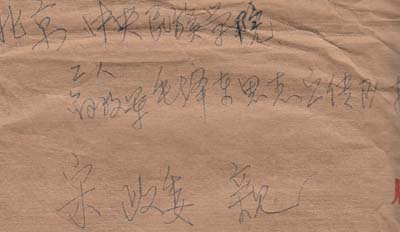 北京 中央民族学院
工人
解放军 毛泽东思想宣传队
宋 政委 亲